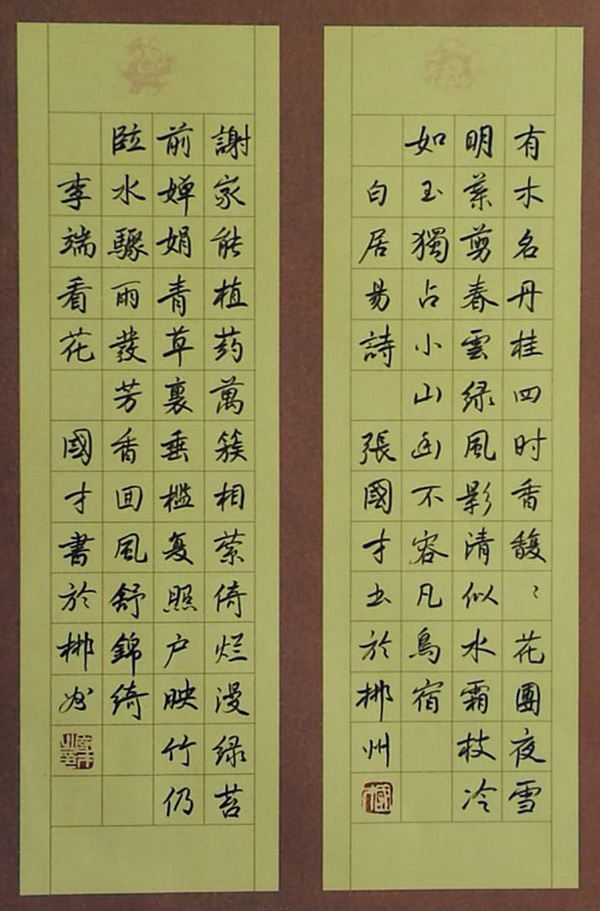 有木名丹桂四时香馥〻花團夜雪
明葉剪春雲绿風影清似水霜枝冷
如玉獨占小山幽不容凡鳥宿
白居易詩 張國才书於郴州
謝家能植药萬簇相萦倚烂漫绿苔
前婵娟青草裏垂槛复照户映竹仍
临水驟雨發芳香回風舒錦绮
李端看花 國才書於郴州